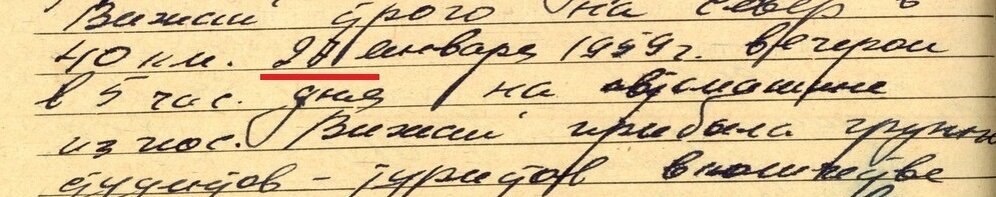 Вижай на север в
40 км. января 1959 г. вечером
в 5 час. дня на автомашине
из пос. Вижай прибыла группа
студентов - туристов в количестве